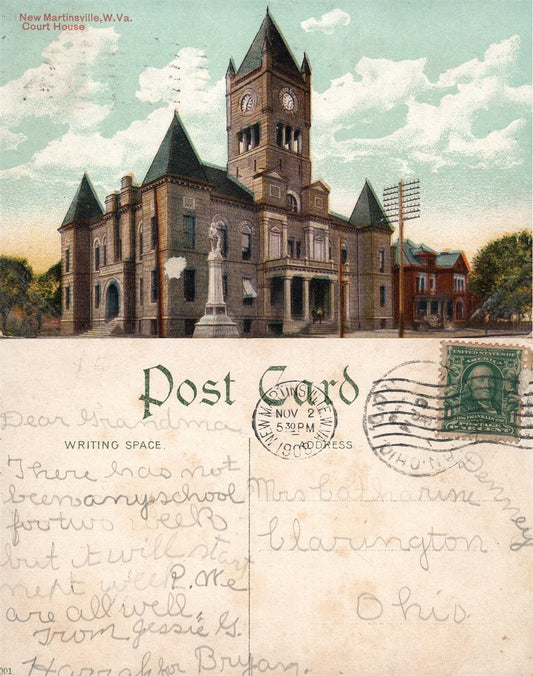 New Martinsville, W.Va.
Court House
Post Card
WRITING SPACE.
ADDRESS
NEW MARTINSVILLE W.VA.
NOV 2
5 30 PM
OHIO
Dear Grandma,
There has not
been any school
for two weeks
but it will start
next week. P. We
are all well.
From Jessie G.
Harrah for Bryan.
Mrs Catharine
Denney
Clarington
Ohio